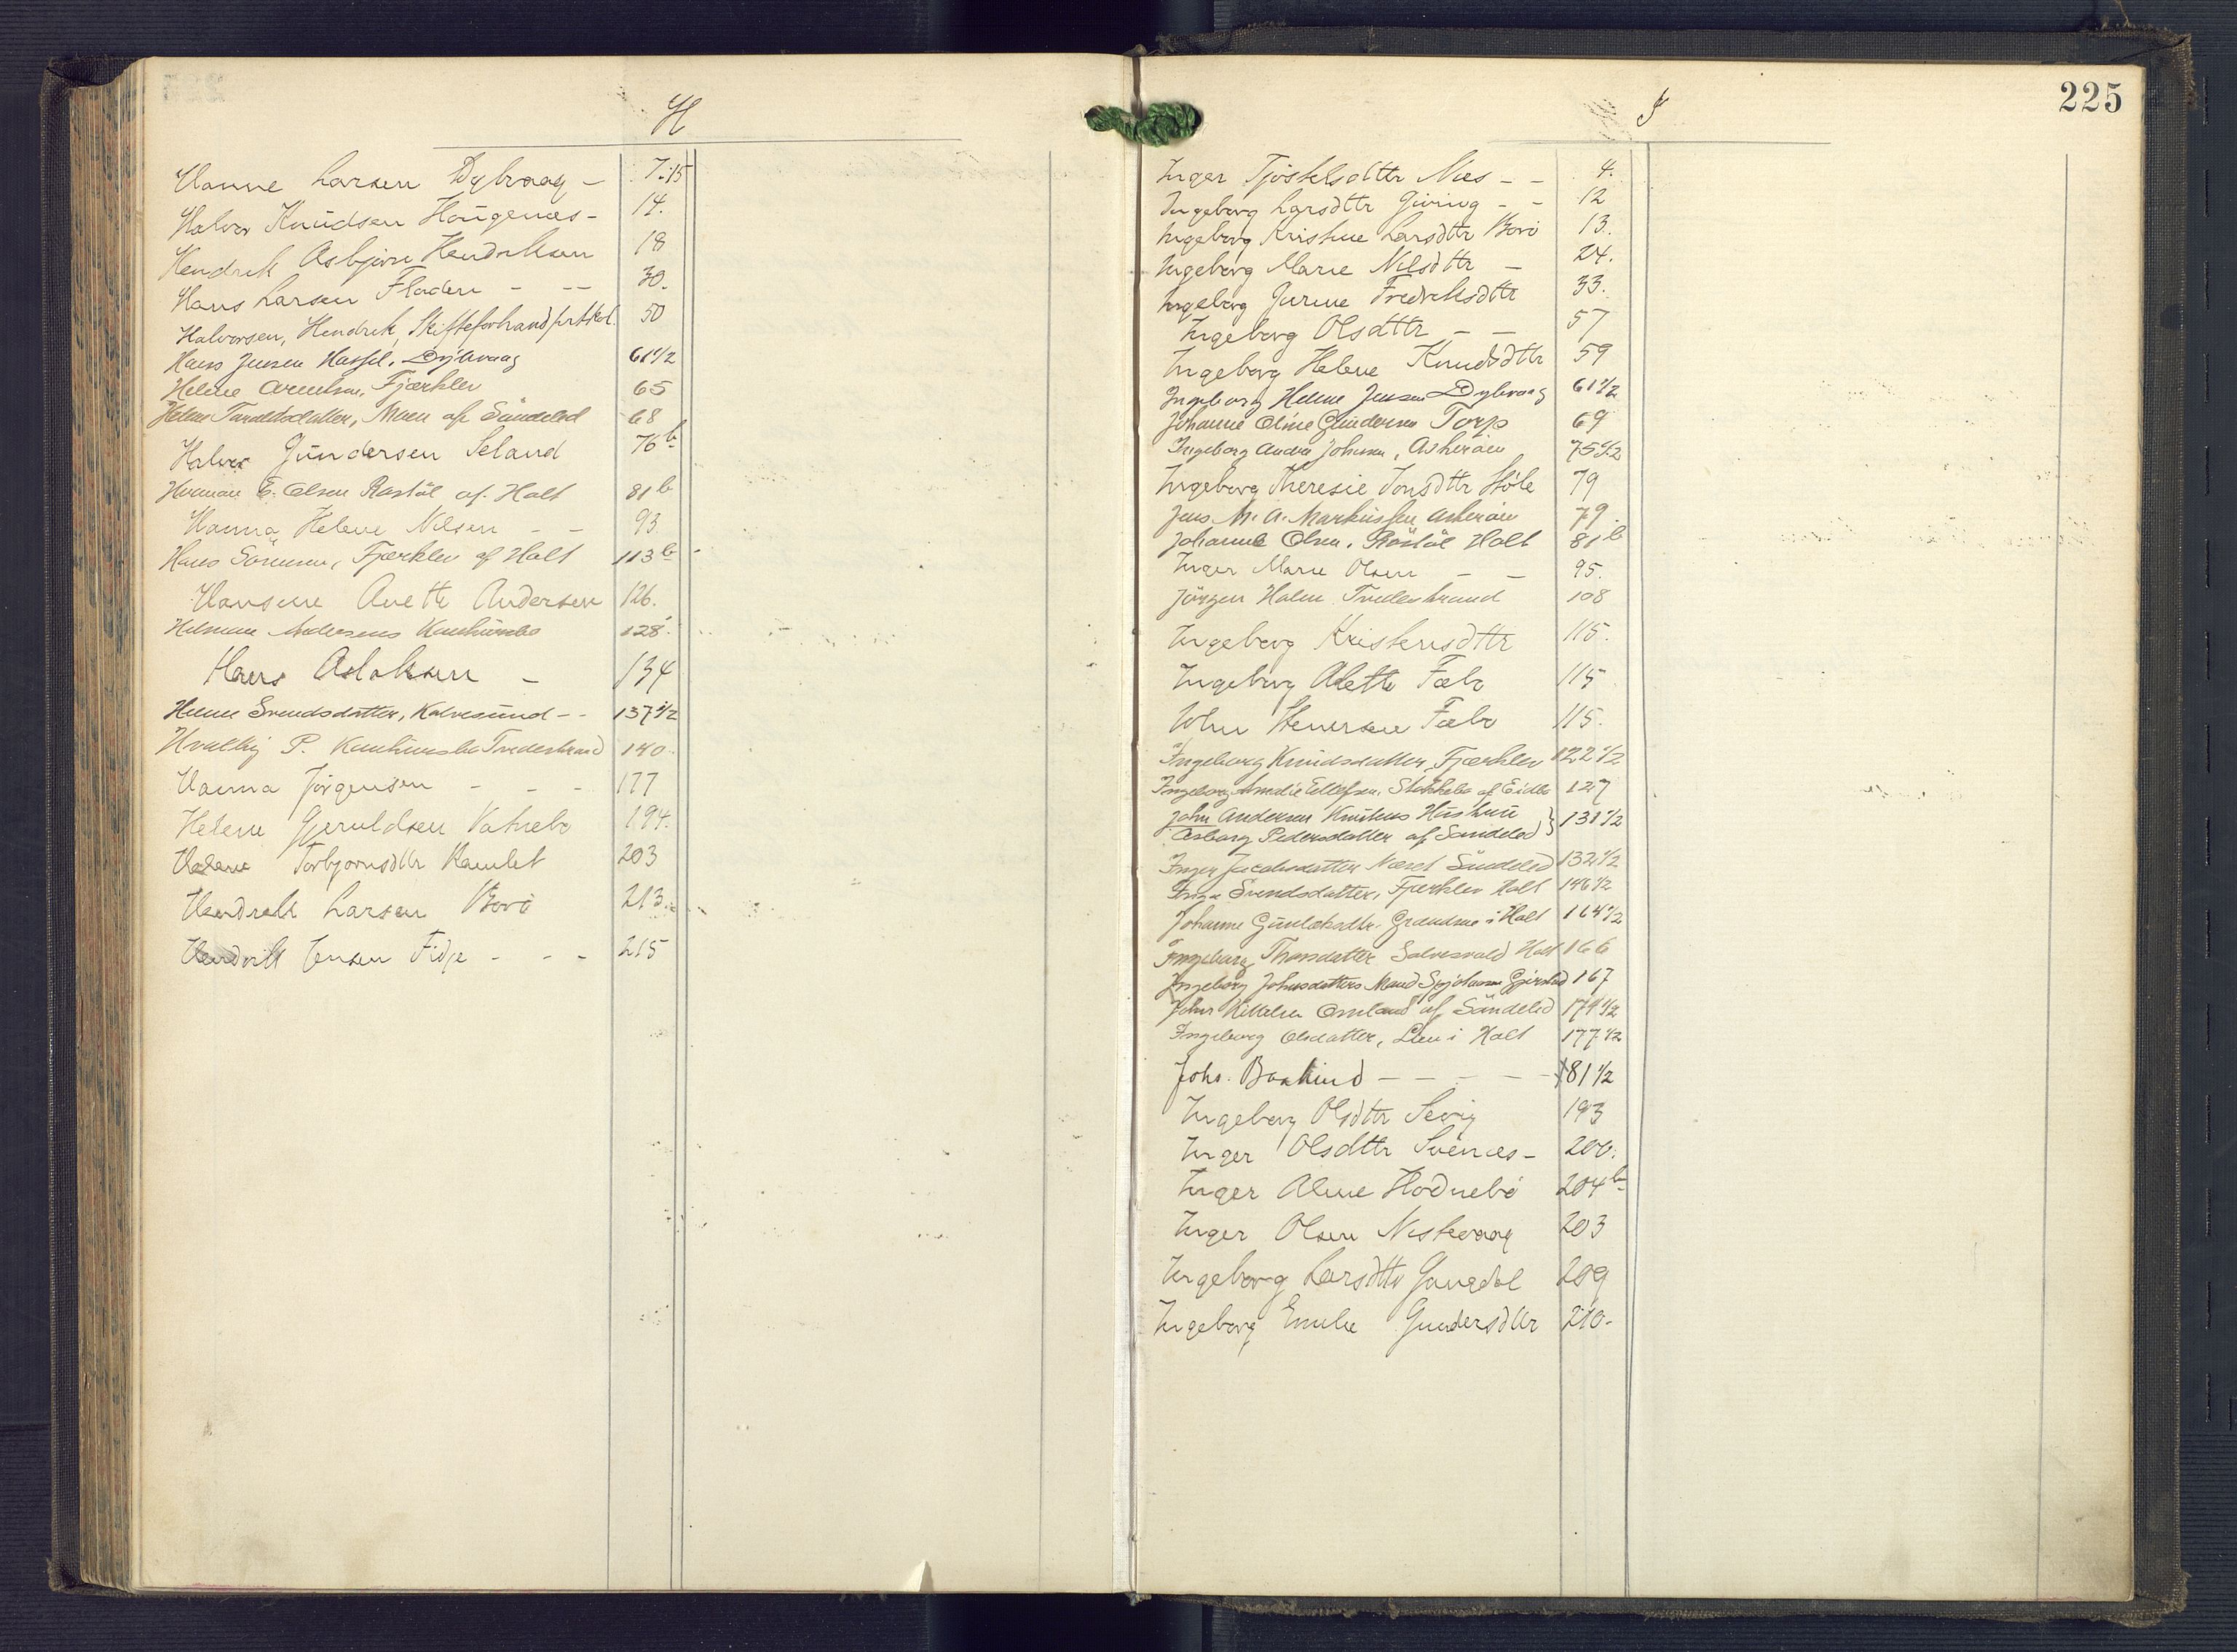 H
Hanne Larsen Dybvaag – 7.15
Halvor Knudsen Haugenæs – 14.
Hendrik Asbjørn Hendriksen 18
Hans Larsen Fladen – – – 30.
Halvorsen, Hendrik, Skifteforhandprtkol. 50
Hans Jensen Hassel, Dybvaag 61 1/2
Helene Arentsen, Fjærklev 65
Helene Taraldsdatter, Moen af Söndeled 68
Halvor Gundersen Seland 76 b
Herman E. Olsen Rastöl af Holt 81 b
Hanna Helene Nilsen – – 93
Hans Sörensen, Fjærklev af Holt 113 b
Hansine Anette Andersen 126.
Helene Andersens 128.
Hans Aslaksen – 134
Helene Svendsdatter, Kalvesund – – 137 1/2
P. Tvedestrand 140
Hanna Jörgensen – – – 177
Helene Gjeruldsen Vatnebo 194.
Helene Torbjørnsdttr Ramlet 203
Hendrik Larsen Borö 213.
Hendrik Jensen Fidje – – – 215
225
I
Inger Tjöstelsdttr Næs – – 4.
Ingeborg Larsdttr Giving – – 12
Ingeborg Kristine Larsdttr Borö 13.
Ingeborg Marie Nilsdttr – 24.
Ingeborg Jurine Fredriksdttr 33.
Ingeborg Olsdttr – – 57
Ingeborg Helene Knudsdttr 59
Ingeborg Helene Jensen Dybvaag 61 1/2
Johanne Oline Gundersen Torp 69
Ingeborg Andrea Johnsen, Askeröen 75 1/2
Ingeborg Theresie Jonsdttr Stöle 79
Jens M. A. Markussen Askeröen 79.
Johanne Olsen, Röstöl Holt 81 b
Inger Marie Olsen – – 95.
Jörgen Holm Tvedestrand 108
Ingeborg Kristensdttr 115.
Ingeborg Alette Fælø 115
John Stenersen Fælø 115.
Ingeborg Knudsdatter, Fjærklev 122 1/2
Ingeborg Amalie Ellefsen, af 127
John Andersen Hustru
Aasborg Pedersdatter af Söndeled } 131 1/2
Inger Jacobsdatter Næset Söndeled 132 1/2
Inga Svendsdatter, Fjærklev Holt 146 1/2
Johanne Gunlaksdtr. Grændsen i Holt 164 1/2
Ingeborg Thorsdatter Salvesvold Holt 166
Ingeborg Johnsdatters Mand Gjerstad 167
John Kittelsen Omland af Söndeled 174 1/2
Ingeborg Olsdatter, Lien i Holt 177 1/2
Johs. Baklund – – – – 181 1/2
Ingeborg Olsdttr Sevig 193
Inger Olsdttr Svenes – 200.
Inger Aline Hödnebö 204 b
Inger Olsen Neskevaag 203
Ingeborg Larsdttr Gangdal 209
Ingeborg Emilie Gundersdttr 210.